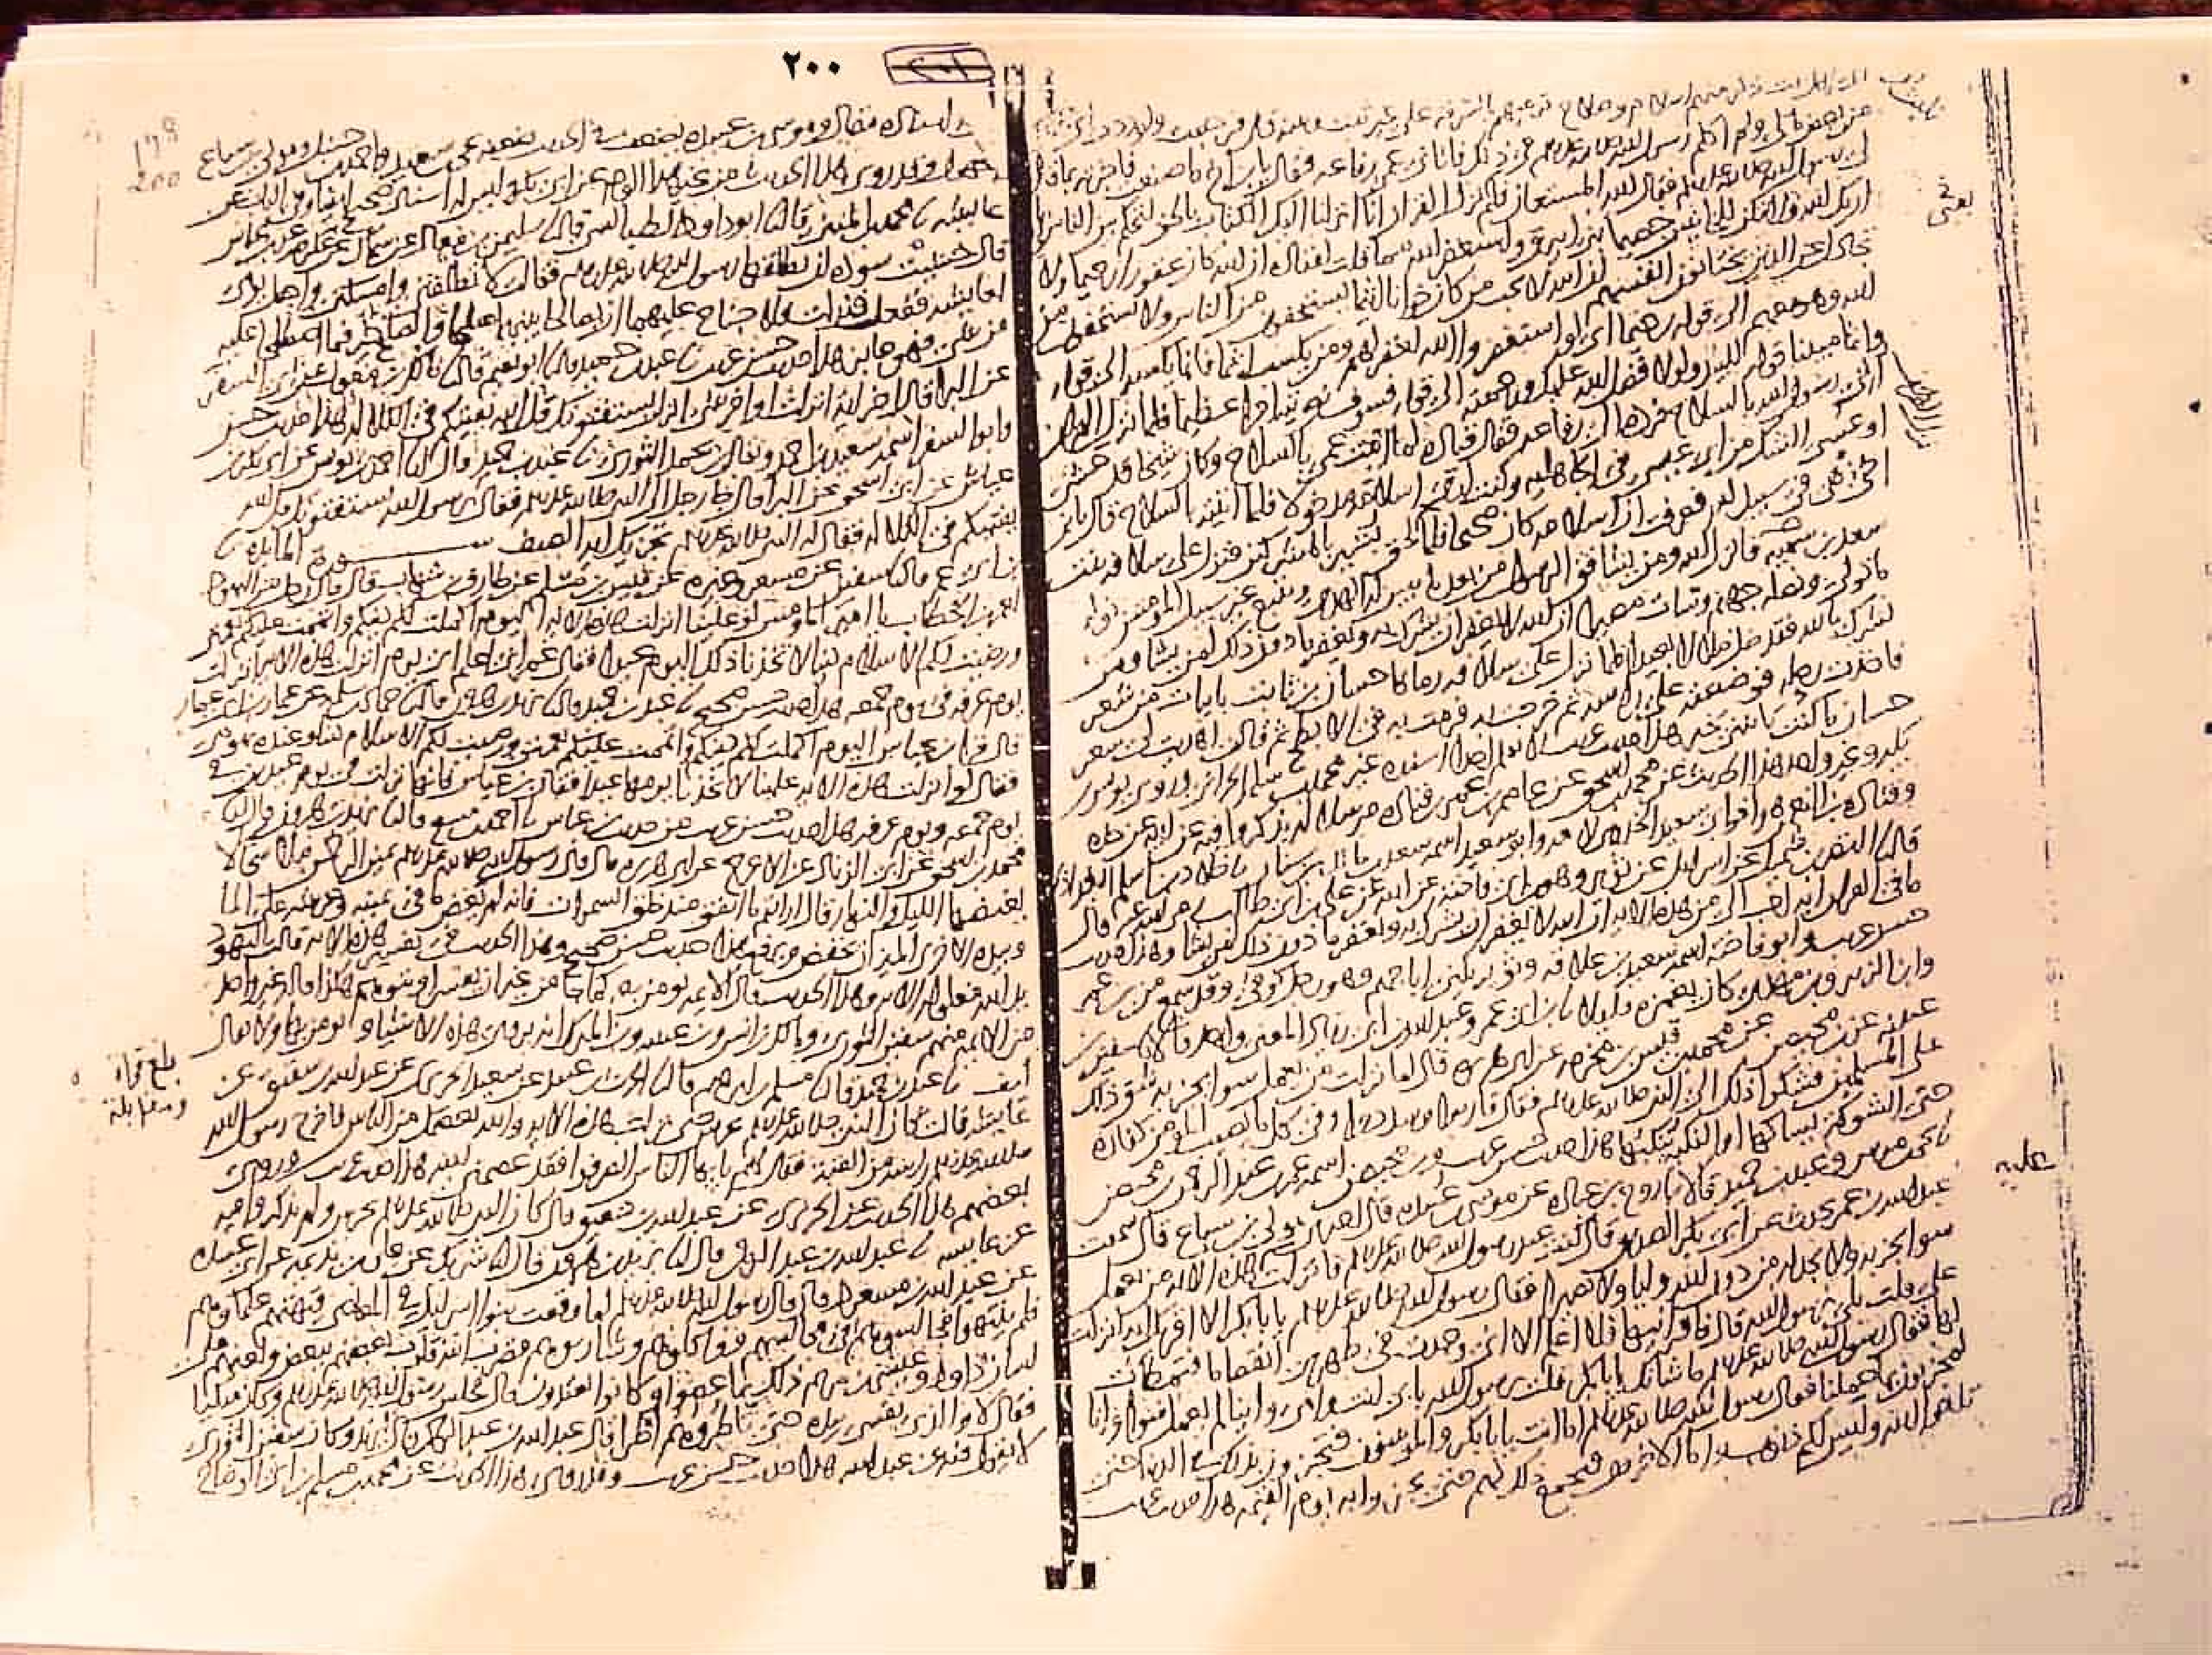 من بعض مالي ولم اكلم رسول الله صلى الله عليه وسلم في ذلك فاتاني عمي رفاعه فقال يا ابن اخي ما صنعت فاخبرته بما قال
لي رسول الله صلى الله عليه وسلم فقال الله المستعان فلم نلبث ان نزل القران انا انزلنا اليك الكتاب بالحق لتحكم بين الناس بما
اريك الله ولا تكن للخاينين خصيما بني ابيرق واستغفر الله مما قلت لقتاده ان الله كان غفورا رحيما ولا
تجادل عن الذين يختانون انفسهم ان الله لا يحب من كان خوانا اثيما يستخفون من الناس ولا يستخفون من
الله وهو معهم الى قوله رحيما اي لو استغفروا الله لغفر لهم ومن يكسب اثما فانما يكسبه الى قوله
واثما مبينا قولهم للبيد ولولا فضل الله عليك ورحمته الى قوله فسوف نوتيه اجرا عظيما فلما نزل القران
اتى رسول الله بالسلاح فرده الى رفاعه فقال قتاده لما اتيت عمي بالسلاح وكان شيخا قد عشى
او عسى الشك من ابي عيسى في الجاهليه وكنت ارى اسلامه مدخولا فلما اتيته بالسلاح قال يا ابن
اخي هي في سبيل الله فعرفت ان اسلامه كان صحيحا فلما نزل القران لحق بشير بالمشركين فنزل على سلافه بنت
سعد بن سميه فانزل الله ومن يشاقق الرسول من بعد ما تبين له الهدى ويتبع غير سبيل المومنين نوله
ما تولى ونصله جهنم وساءت مصيرا ان الله لا يغفر ان يشرك به ويغفر ما دون ذلك لمن يشا ومن
يشرك بالله فقد ضل ضلالا بعيدا فلما نزل على سلافه رماها حسان بن ثابت بابيات من شعر
فاخذت رحله فوضعته على راسها ثم خرجت به فرمت به في الابطح ثم قالت اهديت لي شعر
حسان ما كنت تاتيني بخير هذا حديث غريب لا نعلم احدا اسنده غير محمد بن سلمه الحراني وروى يونس
بن بكير وغير واحد هذا الحديث عن محمد بن اسحق عن عاصم بن عمر بن قتاده مرسلا لم يذكروا فيه عن ابيه عن جده
وقتاده بن النعمان هو اخو ابي سعيد الخدري لامه وابو سعيد اسمه سعد بن مالك بن سنان
قال نا النضر بن شميل عن اسرائيل عن ثوير وهو ابن ابي فاخته عن ابيه عن علي بن ابي طالب قال
ما في القران ايه احب الي من هذه الايه ان الله لا يغفر ان يشرك به ويغفر ما دون ذلك لمن يشا وهذا حديث
حسن غريب وابو فاخته اسمه سعيد بن علاقه وثوير يكنى ابا جهم وهو رجل كوفي وقد سمع من ابن عمر
وابن الزبير وابن مهدي كان يغمزه قليلا نا ابن ابي عمر وعبد الله بن ابي زياد المعنى واحد قالا نا سفين بن
عيينه عن ابن محيصن عن محمد بن قيس بن مخرمه عن ابي هريره قال لما نزلت من يعمل سوا يجز به شق ذلك
على المسلمين فشكوا ذلك الى النبي صلى الله عليه وسلم فقال قاربوا وسددوا وفي كل ما يصيب المومن كفاره
حتى الشوكه يشاكها او النكبه ينكبها هذا حديث حسن غريب وابن محيصن اسمه عمر بن عبد الرحمن بن محيصن
نا يحيى بن موسى وعبد بن حميد قالا نا روح بن عباده عن موسى بن عبيده قال اخبرني مولى بن سباع قال سمعت
عبد الله بن عمر يحدث عن ابي بكر الصديق قال كنت عند رسول الله صلى الله عليه وسلم فانزلت عليه هذه الايه من يعمل
سوا يجز به ولا يجد له من دون الله وليا ولا نصيرا فقال رسول الله صلى الله عليه وسلم يا با بكر الا اقرئك ايه انزلت
علي قلت بلى يا رسول الله قال فاقرانيها فلا اعلم الا اني وجدت في ظهري انقصاما فتمطات
لها فقال رسول الله صلى الله عليه وسلم ما شانك يا با بكر قلت يا رسول الله بابي انت وامي واينا لم يعمل سوا وانا
لمجزيون بما عملنا فقال رسول الله صلى الله عليه وسلم اما انت يا با بكر والمومنون فتجزون بذلك في الدنيا حتى
تلقوا الله وليس لكم ذنوب واما الاخرون فيجمع ذلك لهم حتى يجزوا به يوم القيمه هذا حديث غريب
يعنى
عليه
٢٠٠
200
وفي اسناده مقال وموسى بن عبيده يضعف في الحديث ضعفه يحيى بن سعيد واحمد بن حنبل ومولى بن سباع
مجهول وقد روي هذا الحديث من غير هذا الوجه عن ابي بكر وليس له اسناد صحيح ايضا وفي الباب عن
عايشه نا محمد بن المثنى قال نا ابو داود الطيالسي قال نا سليمن بن معاذ عن سماك عن عكرمه عن ابن عباس
قال خشيت سوده ان يطلقها رسول الله صلى الله عليه وسلم فقالت لا تطلقني وامسكني واجعل يومي
لعايشه ففعل فنزلت فلا جناح عليهما ان يصالحا بينهما صلحا والصلح خير فما اصطلحا عليه
من شي فهو جايز هذا حديث حسن غريب نا عبد بن حميد قال نا ابو نعيم قال نا مالك بن مغول عن ابي السفر
عن البرا قال اخر ايه انزلت او اخر شي انزل يستفتونك قل الله يفتيكم في الكلاله هذا حديث حسن
وابو السفر اسمه سعيد بن احمد ويقال بن يحمد الثوري نا عبد بن حميد قال نا احمد بن يونس عن ابي بكر بن
عياش عن ابي اسحق عن البرا قال جا رجل الى النبي صلى الله عليه وسلم فقال يا رسول الله يستفتونك قل الله
يفتيكم في الكلاله فقال له النبي صلى الله عليه وسلم تجزيك ايه الصيف سورة المايده
نا ابن ابي عمر قال نا سفين عن مسعر وغيره عن قيس بن مسلم عن طارق بن شهاب قال قال رجل من اليهود
لعمر بن الخطاب يا امير المومنين لو علينا انزلت هذه الايه اليوم اكملت لكم دينكم واتممت عليكم نعمتي
ورضيت لكم الاسلام دينا لاتخذنا ذلك اليوم عيدا فقال عمر اني اعلم اي يوم انزلت هذه الايه انزلت
يوم عرفه في يوم جمعه هذا حديث حسن صحيح نا عبد بن حميد قال نا يزيد بن هرون قال نا حماد بن سلمه عن عمار بن ابي عمار
قال قرا ابن عباس اليوم اكملت لكم دينكم واتممت عليكم نعمتي ورضيت لكم الاسلام دينا وعنده يهودي
فقال لو انزلت هذه الايه علينا لاتخذنا يومها عيدا فقال ابن عباس فانها نزلت في يوم عيدين في
يوم جمعه ويوم عرفه هذا حديث حسن غريب من حديث ابن عباس نا احمد بن منيع قال نا يزيد بن هرون قال نا
محمد بن اسحق عن ابي الزناد عن الاعرج عن ابي هريره قال قال رسول الله صلى الله عليه وسلم يمين الرحمن ملاى سحا لا
يغيضها الليل والنهار قال ارايتم ما انفق منذ خلق السموات فانه لم يغض ما في يمينه وعرشه على الما
وبيده الاخرى الميزان يخفض ويرفع هذا حديث حسن صحيح وهذا الحديث في تفسير هذه الايه قالت اليهود
يد الله مغلوله الايه وهذا الحديث قال الايمه نومن به كما جا من غير ان يفسر او يتوهم هكذا قال غير واحد
من الايمه منهم سفين الثوري ومالك بن انس وابن عيينه وابن المبارك انه تروى هذه الاشياء ويومن بها ولا يقال
كيف نا عبد بن حميد قال نا مسلم بن ابرهيم قال نا الحرث بن عبيد عن سعيد الجريري عن عبد الله بن شقيق عن
عايشه قالت كان النبي صلى الله عليه وسلم يحرس حتى نزلت هذه الايه والله يعصمك من الناس فاخرج رسول الله
صلى الله عليه وسلم راسه من القبه فقال لهم يا ايها الناس انصرفوا فقد عصمني الله هذا حديث غريب وروى
بعضهم هذا الحديث عن الجريري عن عبد الله بن شقيق قال كان النبي صلى الله عليه وسلم يحرس ولم يذكروا فيه
عن عايشه نا عبد الله بن عبد الرحمن قال نا يزيد بن هرون قال نا شريك عن علي بن بذيمه عن ابي عبيده
عن عبد الله بن مسعود قال قال رسول الله صلى الله عليه وسلم لما وقعت بنوا اسرايل في المعاصي فنهتهم علماوهم
فلم ينتهوا فجالسوهم في مجالسهم وواكلوهم وشاربوهم فضرب الله قلوب بعضهم ببعض ولعنهم على
لسان داود وعيسى بن مريم ذلك بما عصوا وكانوا يعتدون قال فجلس رسول الله صلى الله عليه وسلم وكان متكيا
فقال لا والذي نفسي بيده حتى تاطروهم اطرا قال عبد الله بن عبد الرحمن قال يزيد وكان سفين الثوري
لا يقول فيه عن عبد الله هذا حديث حسن غريب وقد روي هذا الحديث عن محمد بن مسلم بن ابي الوضاح
بلغ قراة
ومقابلة